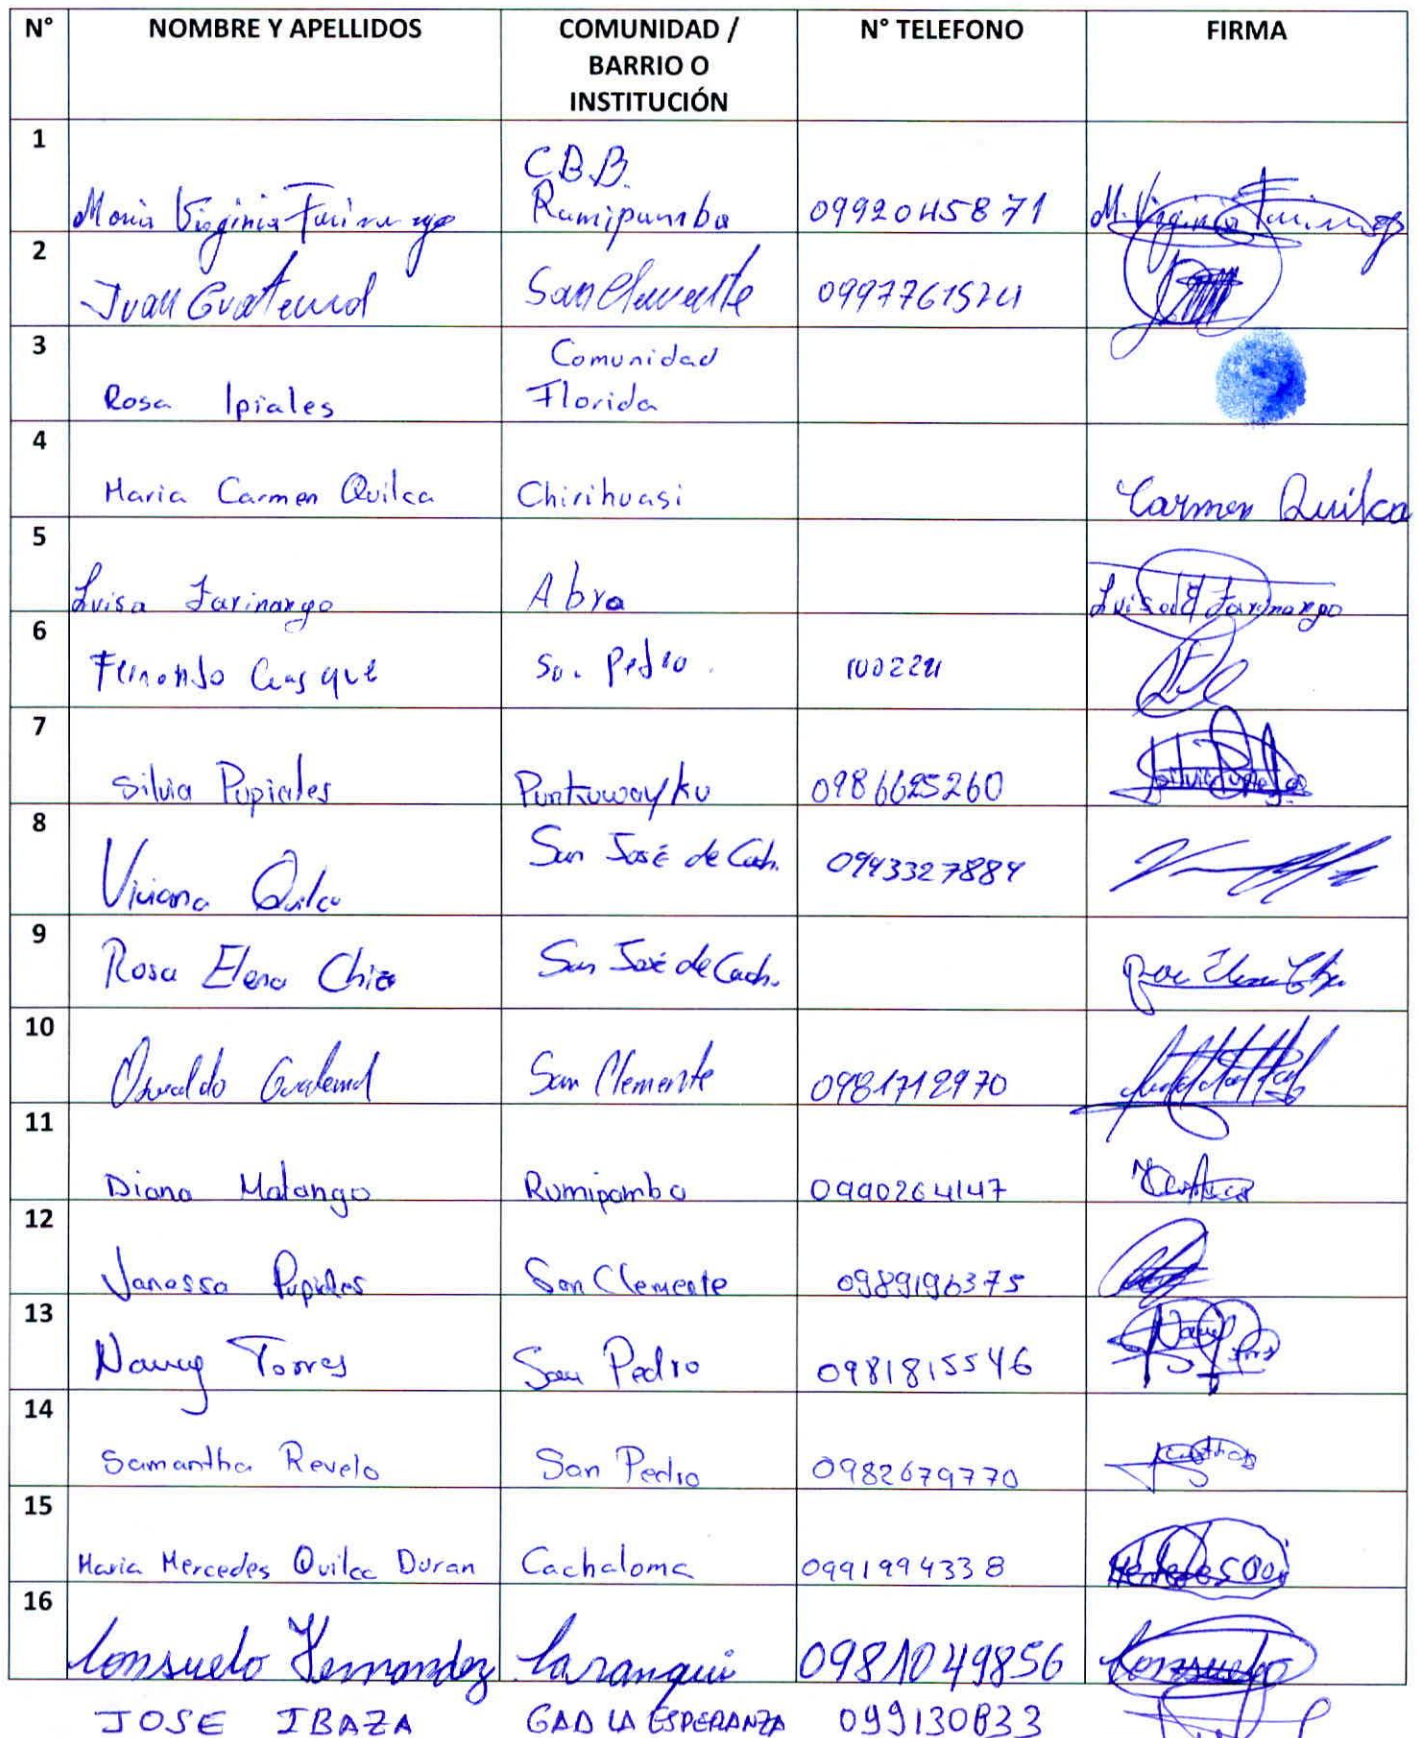 N° NOMBRE Y APELLIDOS COMUNIDAD / N° TELEFONO FIRMA
BARRIO O
INSTITUCIÓN
1
C.B.B.
Maria Virginia Farinango Rumipamba 0992045871 M. Virginia Farinango
2
Juan Guatemal San Clemente
3
Comunidad
Rosa Ipiales Florida
4
Maria Carmen Quilca Chirihuasi Carmen Quilca
5
Luisa Farinango Abra Luisa Farinango
6
Fernando Cuasque San Pedro.
7
Silvia Pupiales Punkuwayku 0986625260
8
San José de Cach. 0993327884
Viviana Quilca
9
Rosa Elena Chiza San José de Cach. Rosa Elena
10
Oswaldo Guatemal San Clemente 0981712970
11
Diana Matango Rumipamba 0990264147
12
Vanessa Pupiales San Clemente 0989196375
13
Nancy Torres San Pedro 0981815546 Nancy
14
Samantha Revelo San Pedro 0982679770
15
Maria Mercedes Quilca Duran Cachaloma 0991994338
16
Consuelo Hernandez Caranqui 0981049856 Consuelo
JOSE IBAZA GAD LA ESPERANZA 099130833